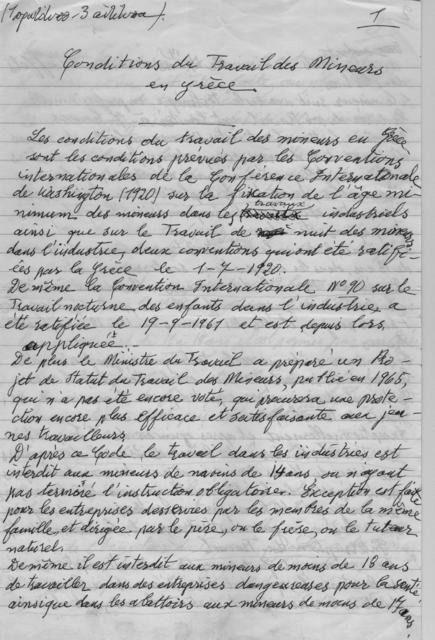 1
Conditions du Travail des Mineurs
en Grèce
Les conditions du travail des mineurs en Grèce
sont les conditions prevues par les Conventions
internationales de la Conférence Internationale
de Washington (1920) sur la fixation de l'âge mi-
nimum des mineurs dans les travaux industriels
ainsi que sur le Travail de nuit des mineurs
dans l'industrie, deux conventions qui ont été ratifi-
ées par la Grèce le 1-7-1920.
De même la Convention Internationale No 90 sur le
Travail nocturne des enfants dans l'industrie a
été ratifiée le 19-9-1961 et est depuis lors
appliquée.
De plus le Ministre du Travail a préparé un Pro-
jet de Statut du Travail des Mineurs, publié en 1965,
qui n'a pas eté encore voté, qui procurera une prote-
ction encore plus efficace et satisfaisante aux jeu-
nes travailleurs.
D'après ce Code le travail dans les industries est
interdit aux mineurs de moins de 14 ans, ou n'ayant
pas terminé l'instruction obligatoire. Exception est faite
pour les entreprises desservies par les membres de la même
famille et dirigée par le père, ou le frère, ou le tuteur
naturel.
De même il est interdit aux mineurs de moins de 18 ans
de travailler dans des entreprises dangeureuses pour la santé
ainsi que dans les abattoirs aux mineurs de moins de 17 ans.